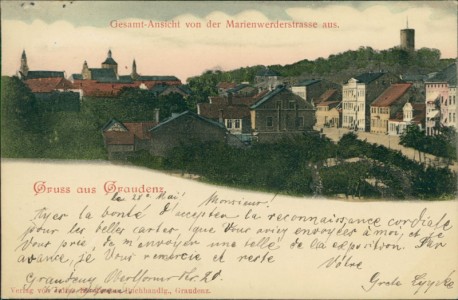 Gesamt-Ansicht von der Marienwerderstrasse aus.
Gruss aus Graudenz.
le 28e Mai Monsieur!
Ayez la bonté d'accepter la reconnaissance cordiale
pour les belles cartes, que vous aviez envoyées à moi, et je
Vous prie, de m'envoyer une telle de la exposition. Par
avance, je Vous remercie et reste
Vôtre
Graudenz
Grete
Verlag von Buchhandlg., Graudenz.